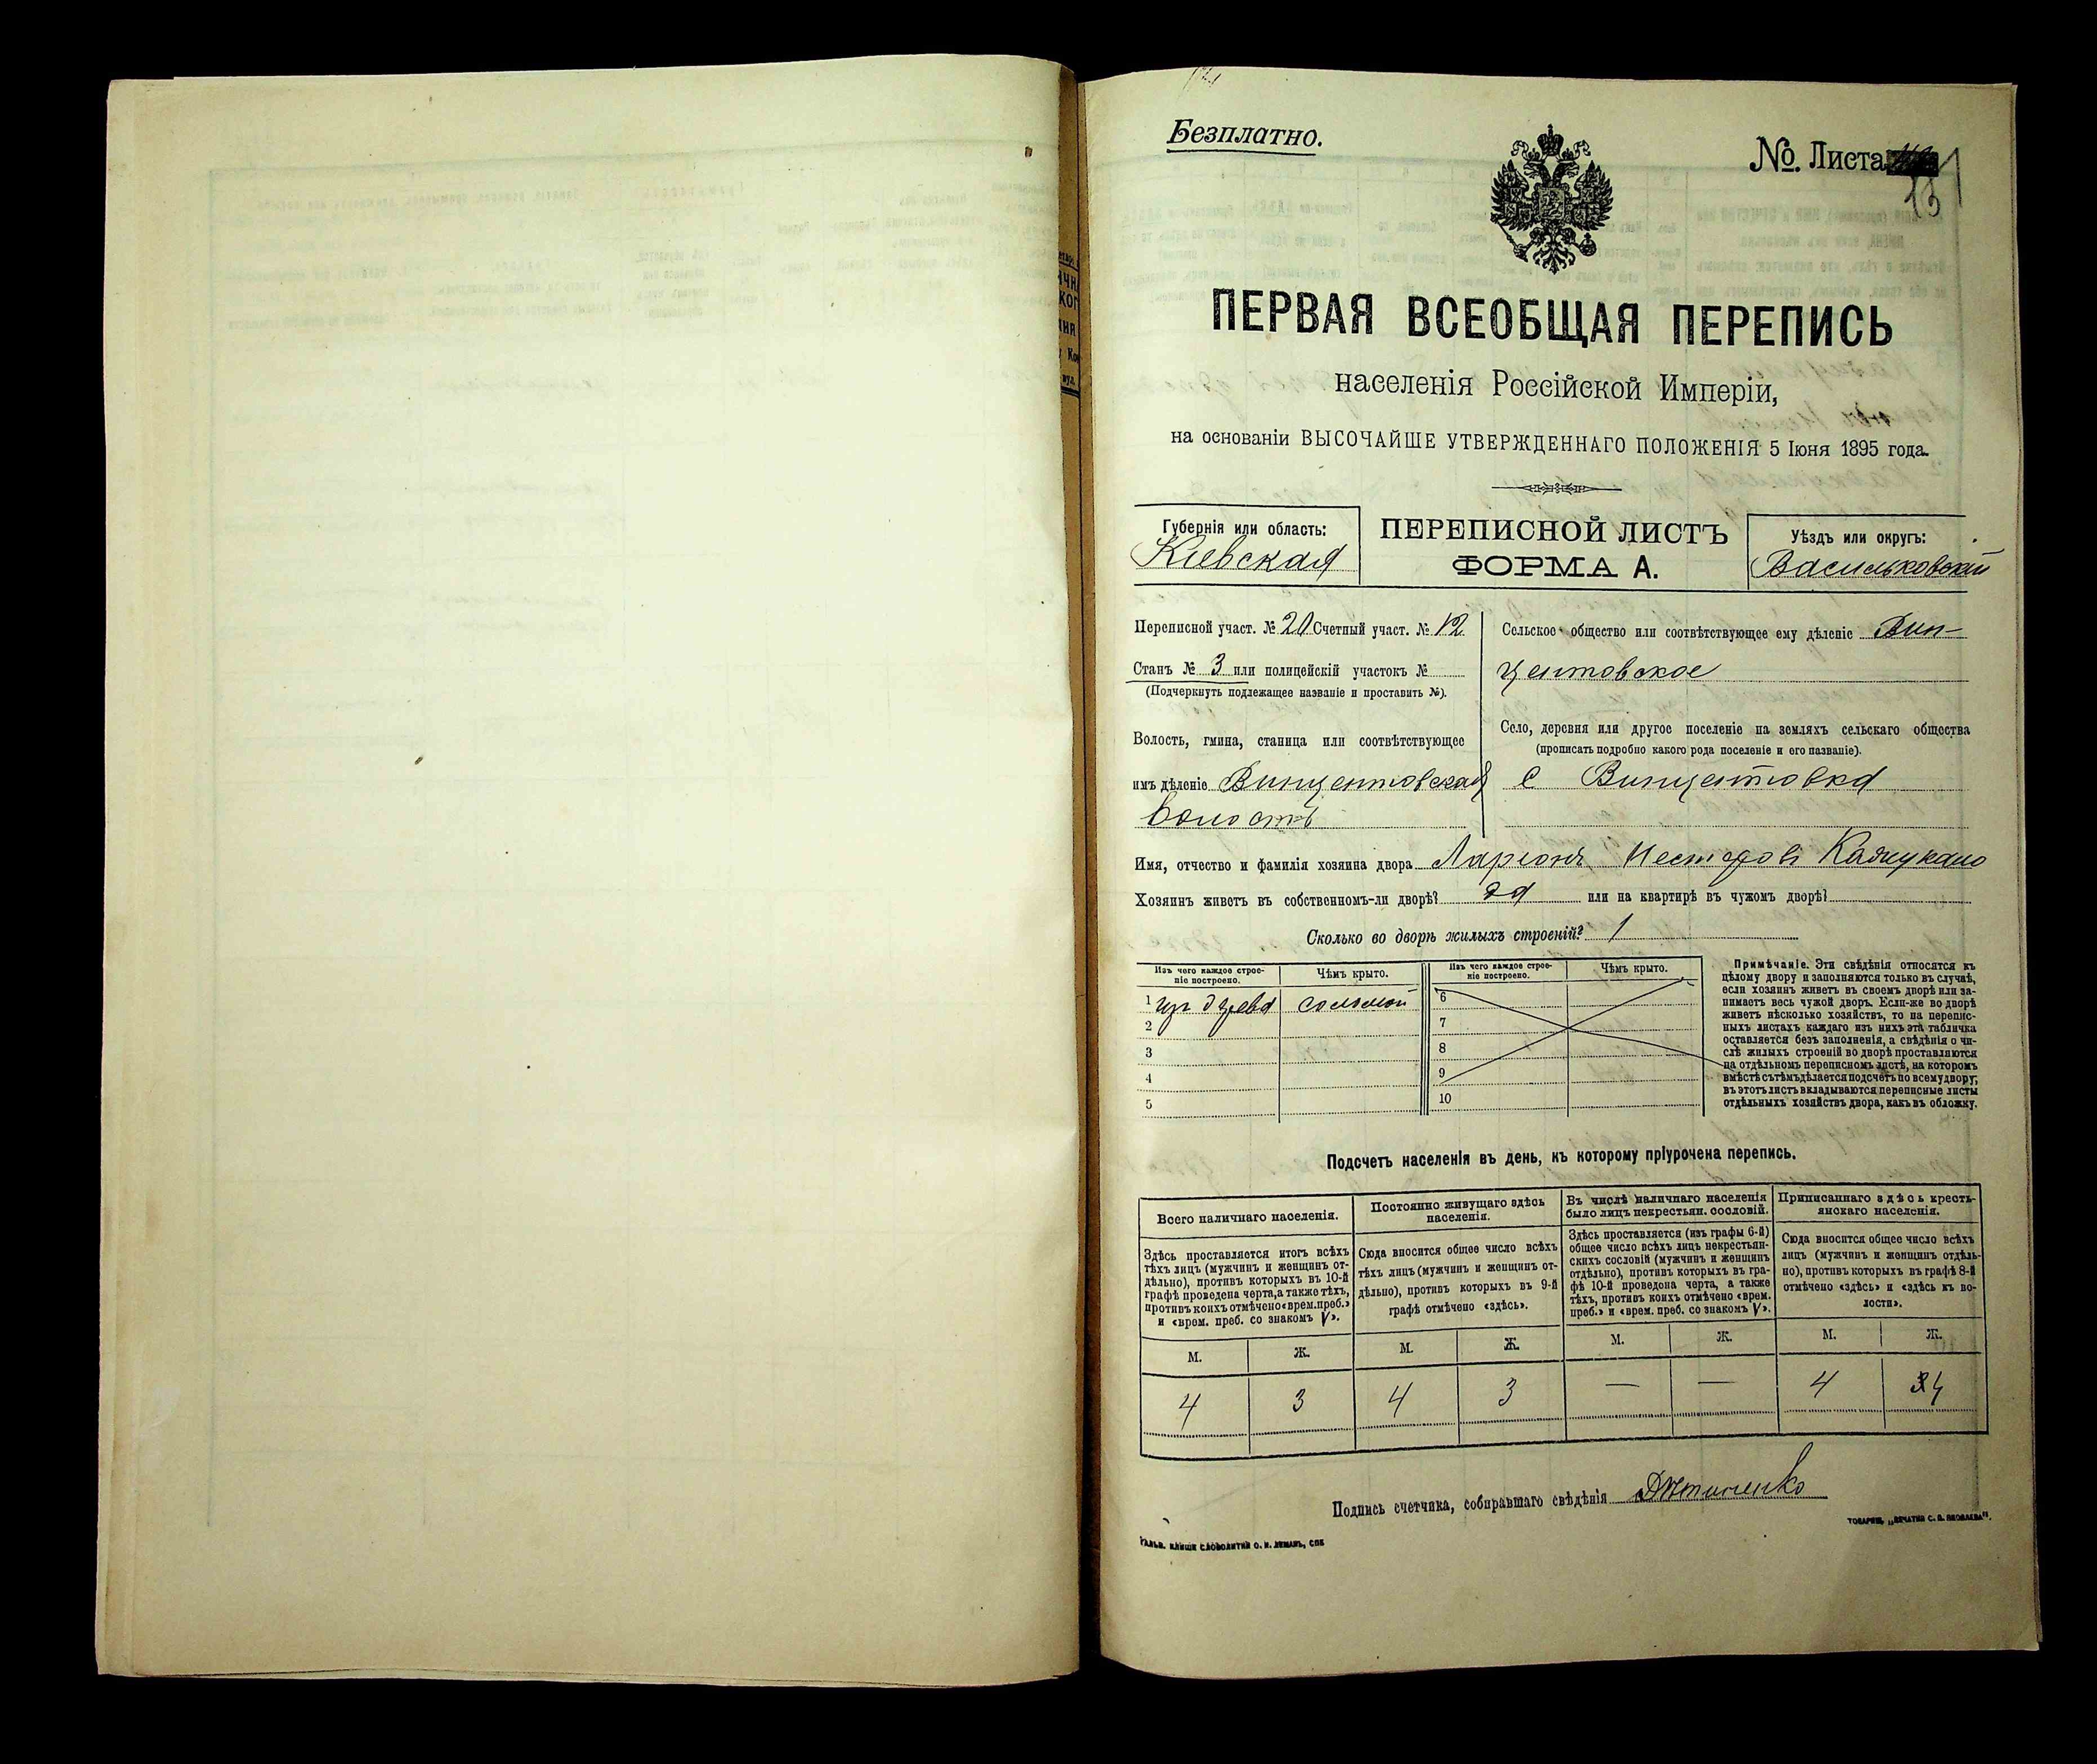 Безплатно.
№ Листа
ПЕРВАЯ ВСЕОБЩАЯ ПЕРЕПИСЬ
населенія Россійской Имперіи,
на основаніи ВЫСОЧАЙШЕ УТВЕРЖДЕННАГО ПОЛОЖЕНІЯ 5 Іюня 1895 года.
Губернія или область:
Кіевская
ПЕРЕПИСНОЙ ЛИСТЪ
ФОРМА А.
Уѣздъ или округъ:
Васильковскій
Переписной участ. № 20 Счетный участ. № 12
Станъ № 3 или полицейскій участокъ №
(Подчеркнуть подлежащее названіе и проставить №).
Волость, гмина, станица или соотвѣтствующее
имъ дѣленіе Винцентовская
волость
Сельское общество или соотвѣтствующее ему дѣленіе Вин-
центовское
Село, деревня или другое поселеніе на земляхъ сельскаго общества
(прописать подробно какого рода поселеніе и его названіе).
с Винцентовка
Имя, отчество и фамилія хозяина двора Ларіонъ Нестеровъ
Хозяинъ живетъ въ собственномъ-ли дворѣ? да или на квартирѣ въ чужомъ дворѣ?
Сколько во дворѣ жилыхъ строеній? 1
Изъ чего каждое строе-
ніе построено.
Чѣмъ крыто.
1 изъ дерева соломой
2
3
4
5
Изъ чего каждое строе-
ніе построено.
Чѣмъ крыто.
6
7
8
9
10
Примѣчаніе. Эти свѣдѣнія относятся къ
цѣлому двору и заполняются только въ случаѣ,
если хозяинъ живетъ въ своемъ дворѣ или за-
нимаетъ весь чужой дворъ. Если-же во дворѣ
живетъ нѣсколько хозяйствъ, то на перепис-
ныхъ листахъ каждаго изъ нихъ эта табличка
оставляется безъ заполненія, а свѣдѣнія о чи-
слѣ жилыхъ строеній во дворѣ проставляются
на отдѣльномъ переписномъ листѣ, на которомъ
вмѣстѣ съ тѣмъ дѣлается подсчетъ по всему двору;
въ этотъ листъ вкладываются переписные листы
отдѣльныхъ хозяйствъ двора, какъ въ обложку.
Подсчетъ населенія въ день, къ которому пріурочена перепись.
Всего наличнаго населенія.
Здѣсь проставляется итогъ всѣхъ
тѣхъ лицъ (мужчинъ и женщинъ от-
дѣльно), противъ которыхъ въ 10-й
графѣ проведена черта, а также тѣхъ,
противъ коихъ отмѣчено «врем. преб.»
и «врем. преб. со знакомъ V».
Постоянно живущаго здѣсь
населенія.
Сюда вносится общее число всѣхъ
тѣхъ лицъ (мужчинъ и женщинъ от-
дѣльно), противъ которыхъ въ 9-й
графѣ отмѣчено «здѣсь».
Въ числѣ наличнаго населенія
было лицъ некрестьян. сословій.
Здѣсь проставляется (изъ графы 6-й)
общее число всѣхъ лицъ некрестьян-
скихъ сословій (мужчинъ и женщинъ
отдѣльно), противъ которыхъ въ гра-
фѣ 10-й проведена черта, а также
тѣхъ, противъ коихъ отмѣчено «врем.
преб.» и «врем. преб. со знакомъ V».
Приписаннаго здѣсь кресть-
янскаго населенія.
Сюда вносится общее число всѣхъ
лицъ (мужчинъ и женщинъ отдѣль-
но), противъ которыхъ въ графѣ 8-й
отмѣчено «здѣсь» и «здѣсь къ во-
лости».
М. Ж. М. Ж. М. Ж. М. Ж.
4 3 4 3 — — 4 4
Подпись счетчика, собиравшаго свѣдѣнія
ГАЛЬВ. КЛИШЕ СЛОВОЛИТНИ О. И. ЛЕМАНЪ, СПБ
ТОВАРИЩ. „ПЕЧАТНЯ С. П. ЯКОВЛЕВА".